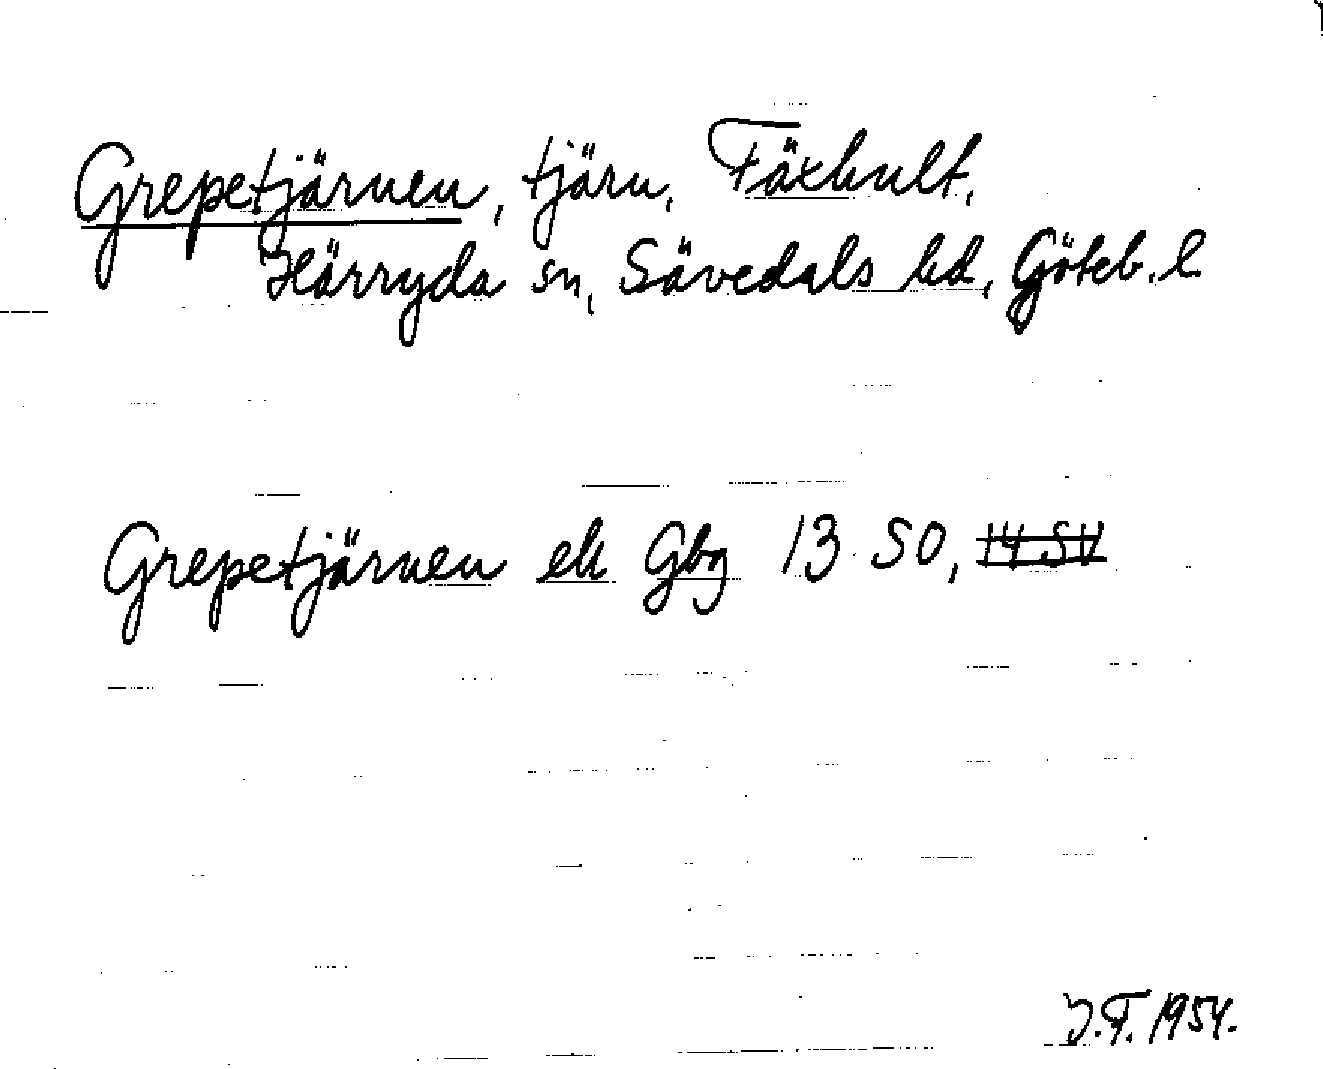 Grepetjärnen, tjärn, Fäxhult,
Härryda sn, Sävedals hd, Göteb. l
Grepetjärnen ek Gbg 13 SO,
J.F. 1954.